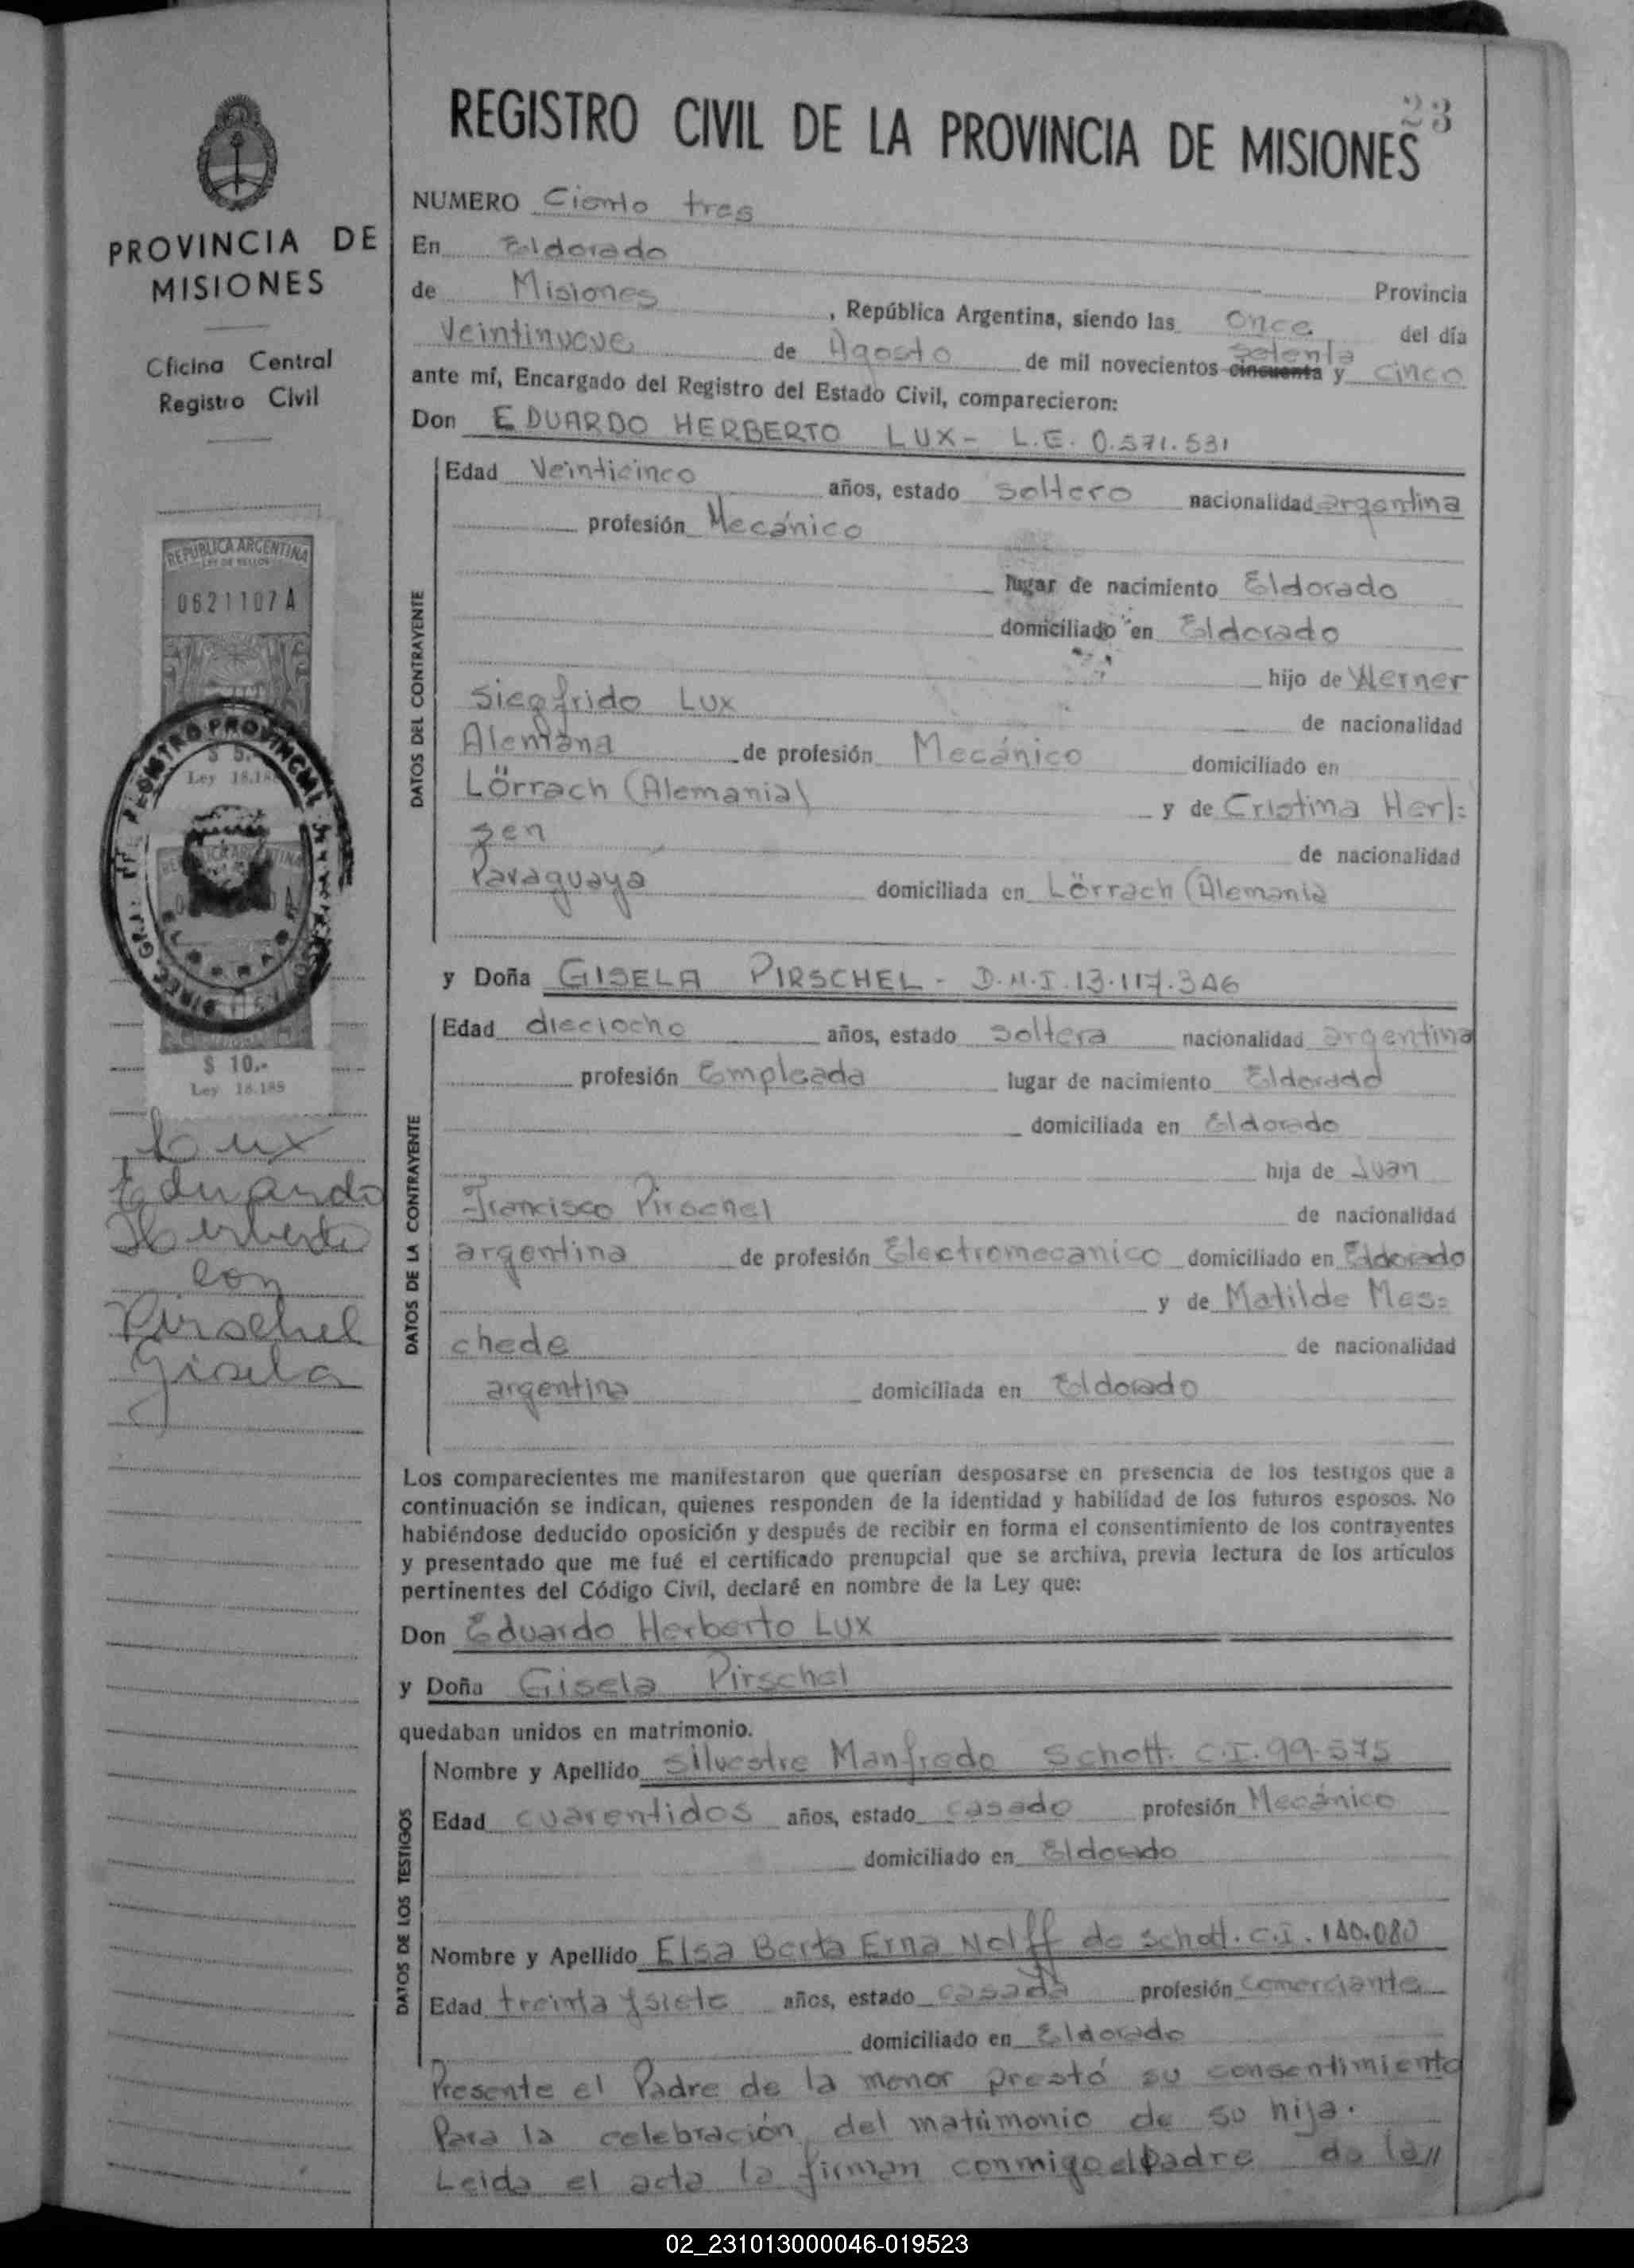 23
REGISTRO CIVIL DE LA PROVINCIA DE MISIONES
PROVINCIA DE
MISIONES
Oficina Central
Registro Civil
REPUBLICA ARGENTINA
LEY DE SELLOS
0621107 A
$ 5.-
Ley 18.188
REGISTRO PROVINCIAL
$ 10.-
Ley 18.188
Lux
Eduardo
Herberto
con
Pirschel
Gisela
NUMERO Ciento tres
En Eldorado
Provincia
de Misiones, República Argentina, siendo las Once del día
Veintinueve de Agosto de mil novecientos cincuenta setenta y cinco
ante mí, Encargado del Registro del Estado Civil, comparecieron:
Don EDUARDO HERBERTO LUX - L.E. 0.571.531
DATOS DEL CONTRAYENTE
Edad Veinticinco años, estado Soltero nacionalidad argentina
profesión Mecánico
lugar de nacimiento Eldorado
domiciliado en Eldorado
hijo de Werner
Siegfrido Lux
de nacionalidad
Alemana de profesión Mecánico domiciliado en
Lörrach (Alemania) y de Cristina Herl=
sen
de nacionalidad
Paraguaya domiciliada en Lörrach (Alemania
y Doña GISELA PIRSCHEL - D.N.I. 13.117.346
DATOS DE LA CONTRAYENTE
Edad dieciocho años, estado Soltera nacionalidad argentina
profesión Empleada lugar de nacimiento Eldorado
domiciliada en Eldorado
hija de Juan
Francisco Pirschel de nacionalidad
argentina de profesión Electromecanico domiciliado en Eldorado
y de Matilde Mes=
chede de nacionalidad
argentina domiciliada en Eldorado
Los comparecientes me manifestaron que querían desposarse en presencia de los testigos que a
continuación se indican, quienes responden de la identidad y habilidad de los futuros esposos. No
habiéndose deducido oposición y después de recibir en forma el consentimiento de los contrayentes
y presentado que me fué el certificado prenupcial que se archiva, previa lectura de los artículos
pertinentes del Código Civil, declaré en nombre de la Ley que:
Don Eduardo Herberto Lux
y Doña Gisela Pirschel
quedaban unidos en matrimonio.
DATOS DE LOS TESTIGOS
Nombre y Apellido Silvestre Manfredo Schott. C.I. 99.575
Edad cuarentidos años, estado casado profesión Mecánico
domiciliado en Eldorado
Nombre y Apellido Elsa Berta Erna Nolff de Schott. C.I. 140.080
Edad treinta y siete años, estado casada profesión comerciante
domiciliado en Eldorado
Presente el Padre de la menor prestó su consentimiento
Para la celebración del matrimonio de su hija.
Leida el acta la firman conmigo el padre de la//
02_231013000046-019523